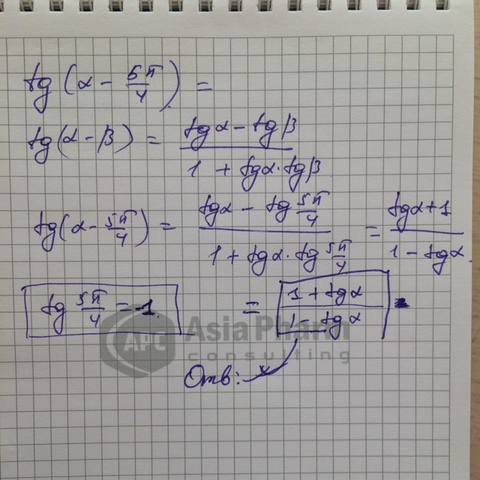 tg(α - 5π/4) =
tg(α - β) = (tgα - tgβ)/(1 + tgα · tgβ)
tg(α - 5π/4) = (tgα - tg 5π/4)/(1 + tgα · tg 5π/4) = (tgα + 1)/(1 - tgα)
tg 5π/4 = -1 = (1 + tgα)/(1 - tgα)
APC Asia Pharm
consulting
Отв: